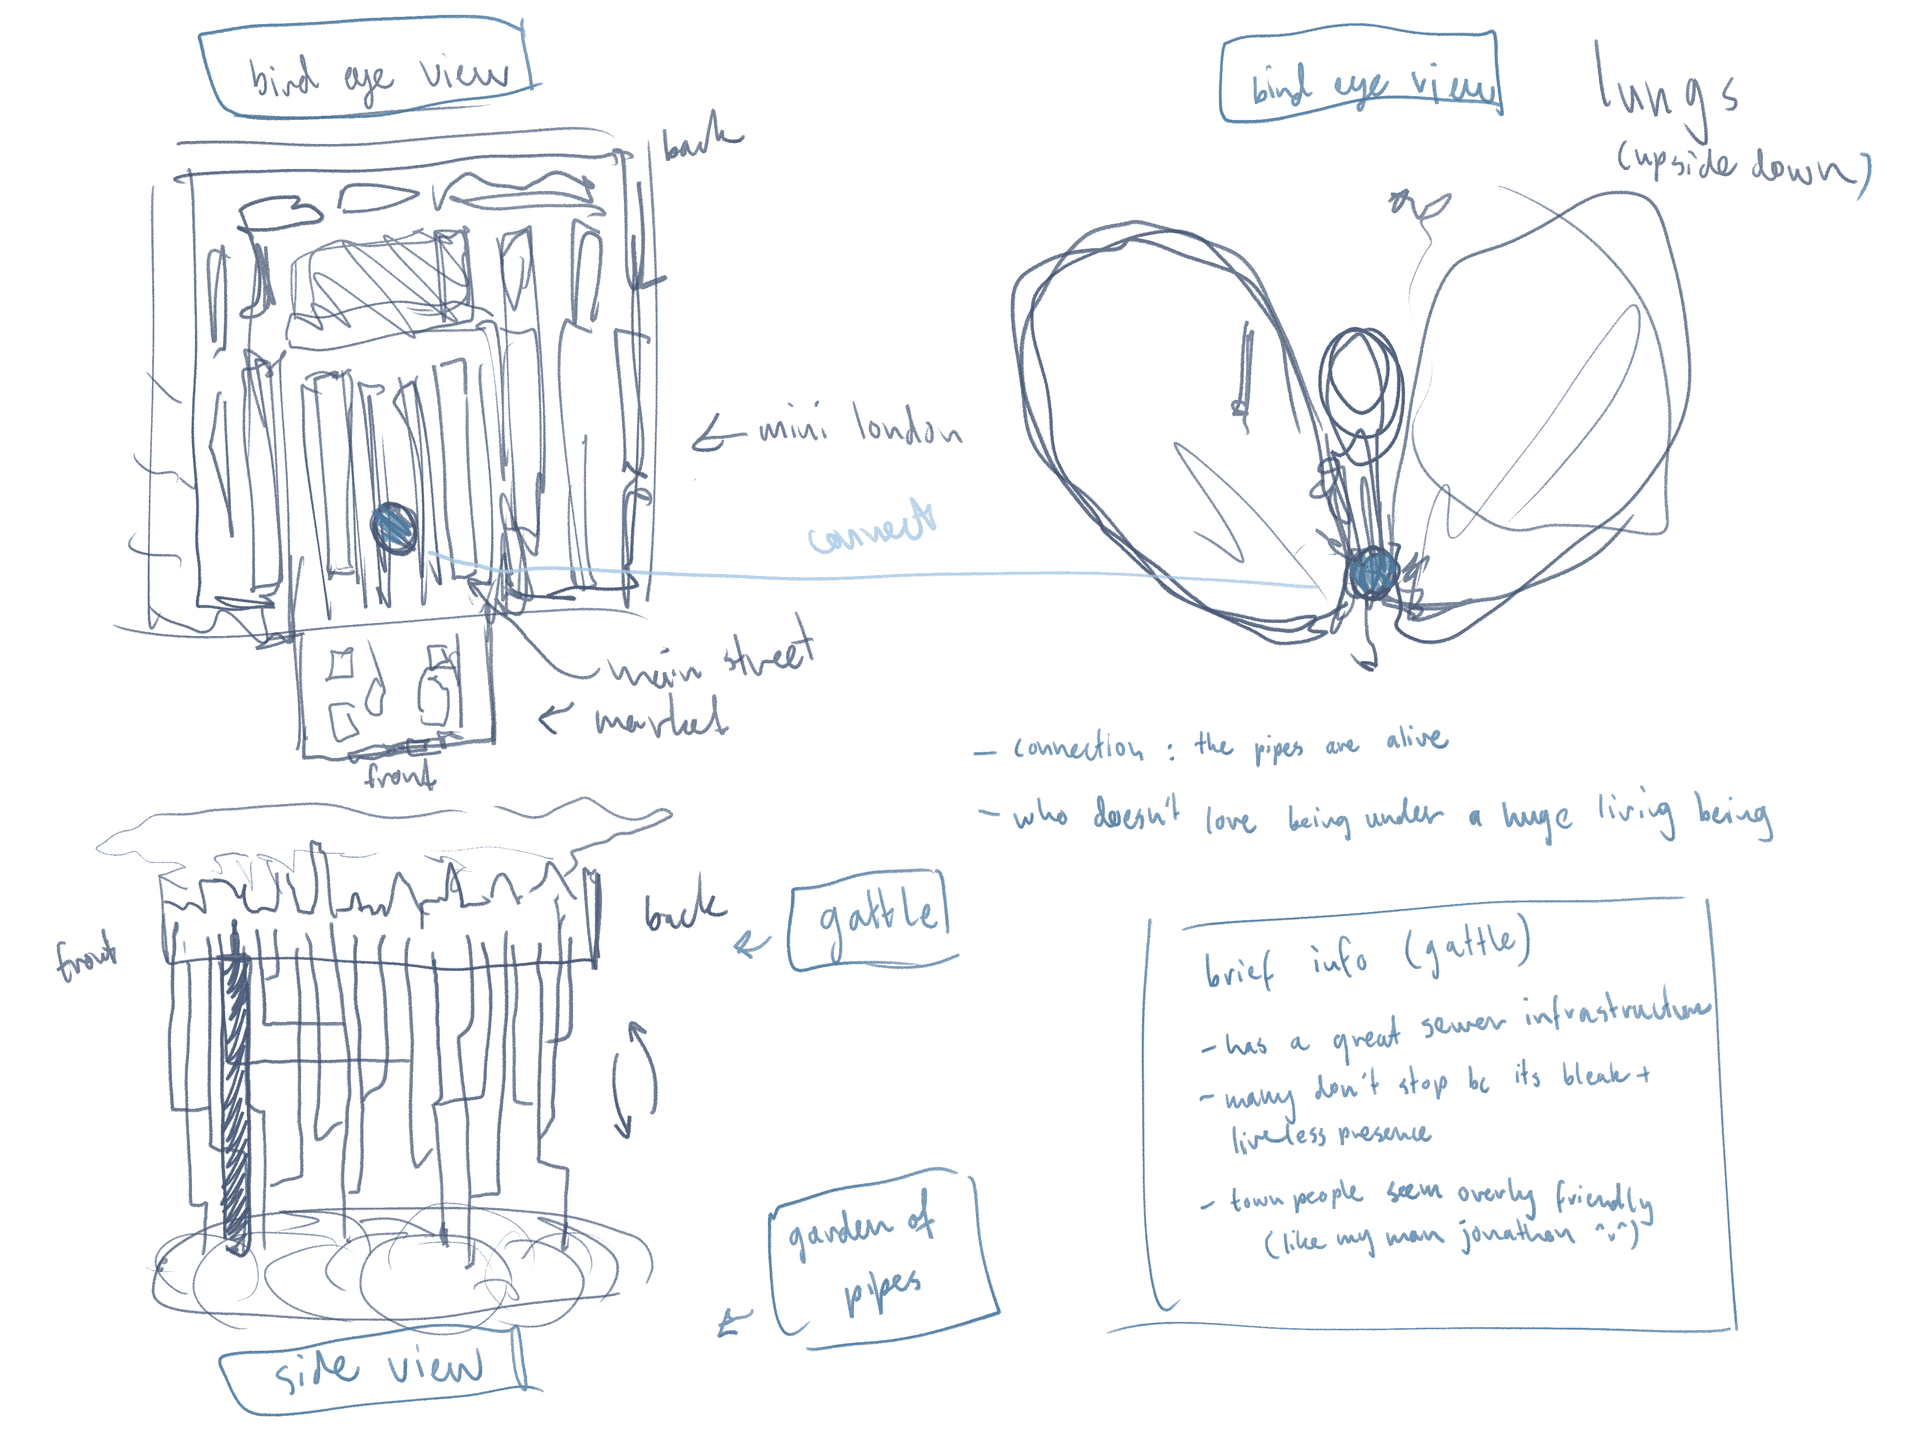 bird eye view
back
← mini london
connect
main street
← market
front
bird eye view
lungs
(upside down)
- connection : the pipes are alive
- who doesn't love being under a huge living being
front
back
← gattle
← garden of
pipes
side view
brief info (gattle)
- has a great sewer infrastructure
- many don't stop bc its bleak +
liveless presence
- town people seem overly friendly
(like my man jonathon ^.^)